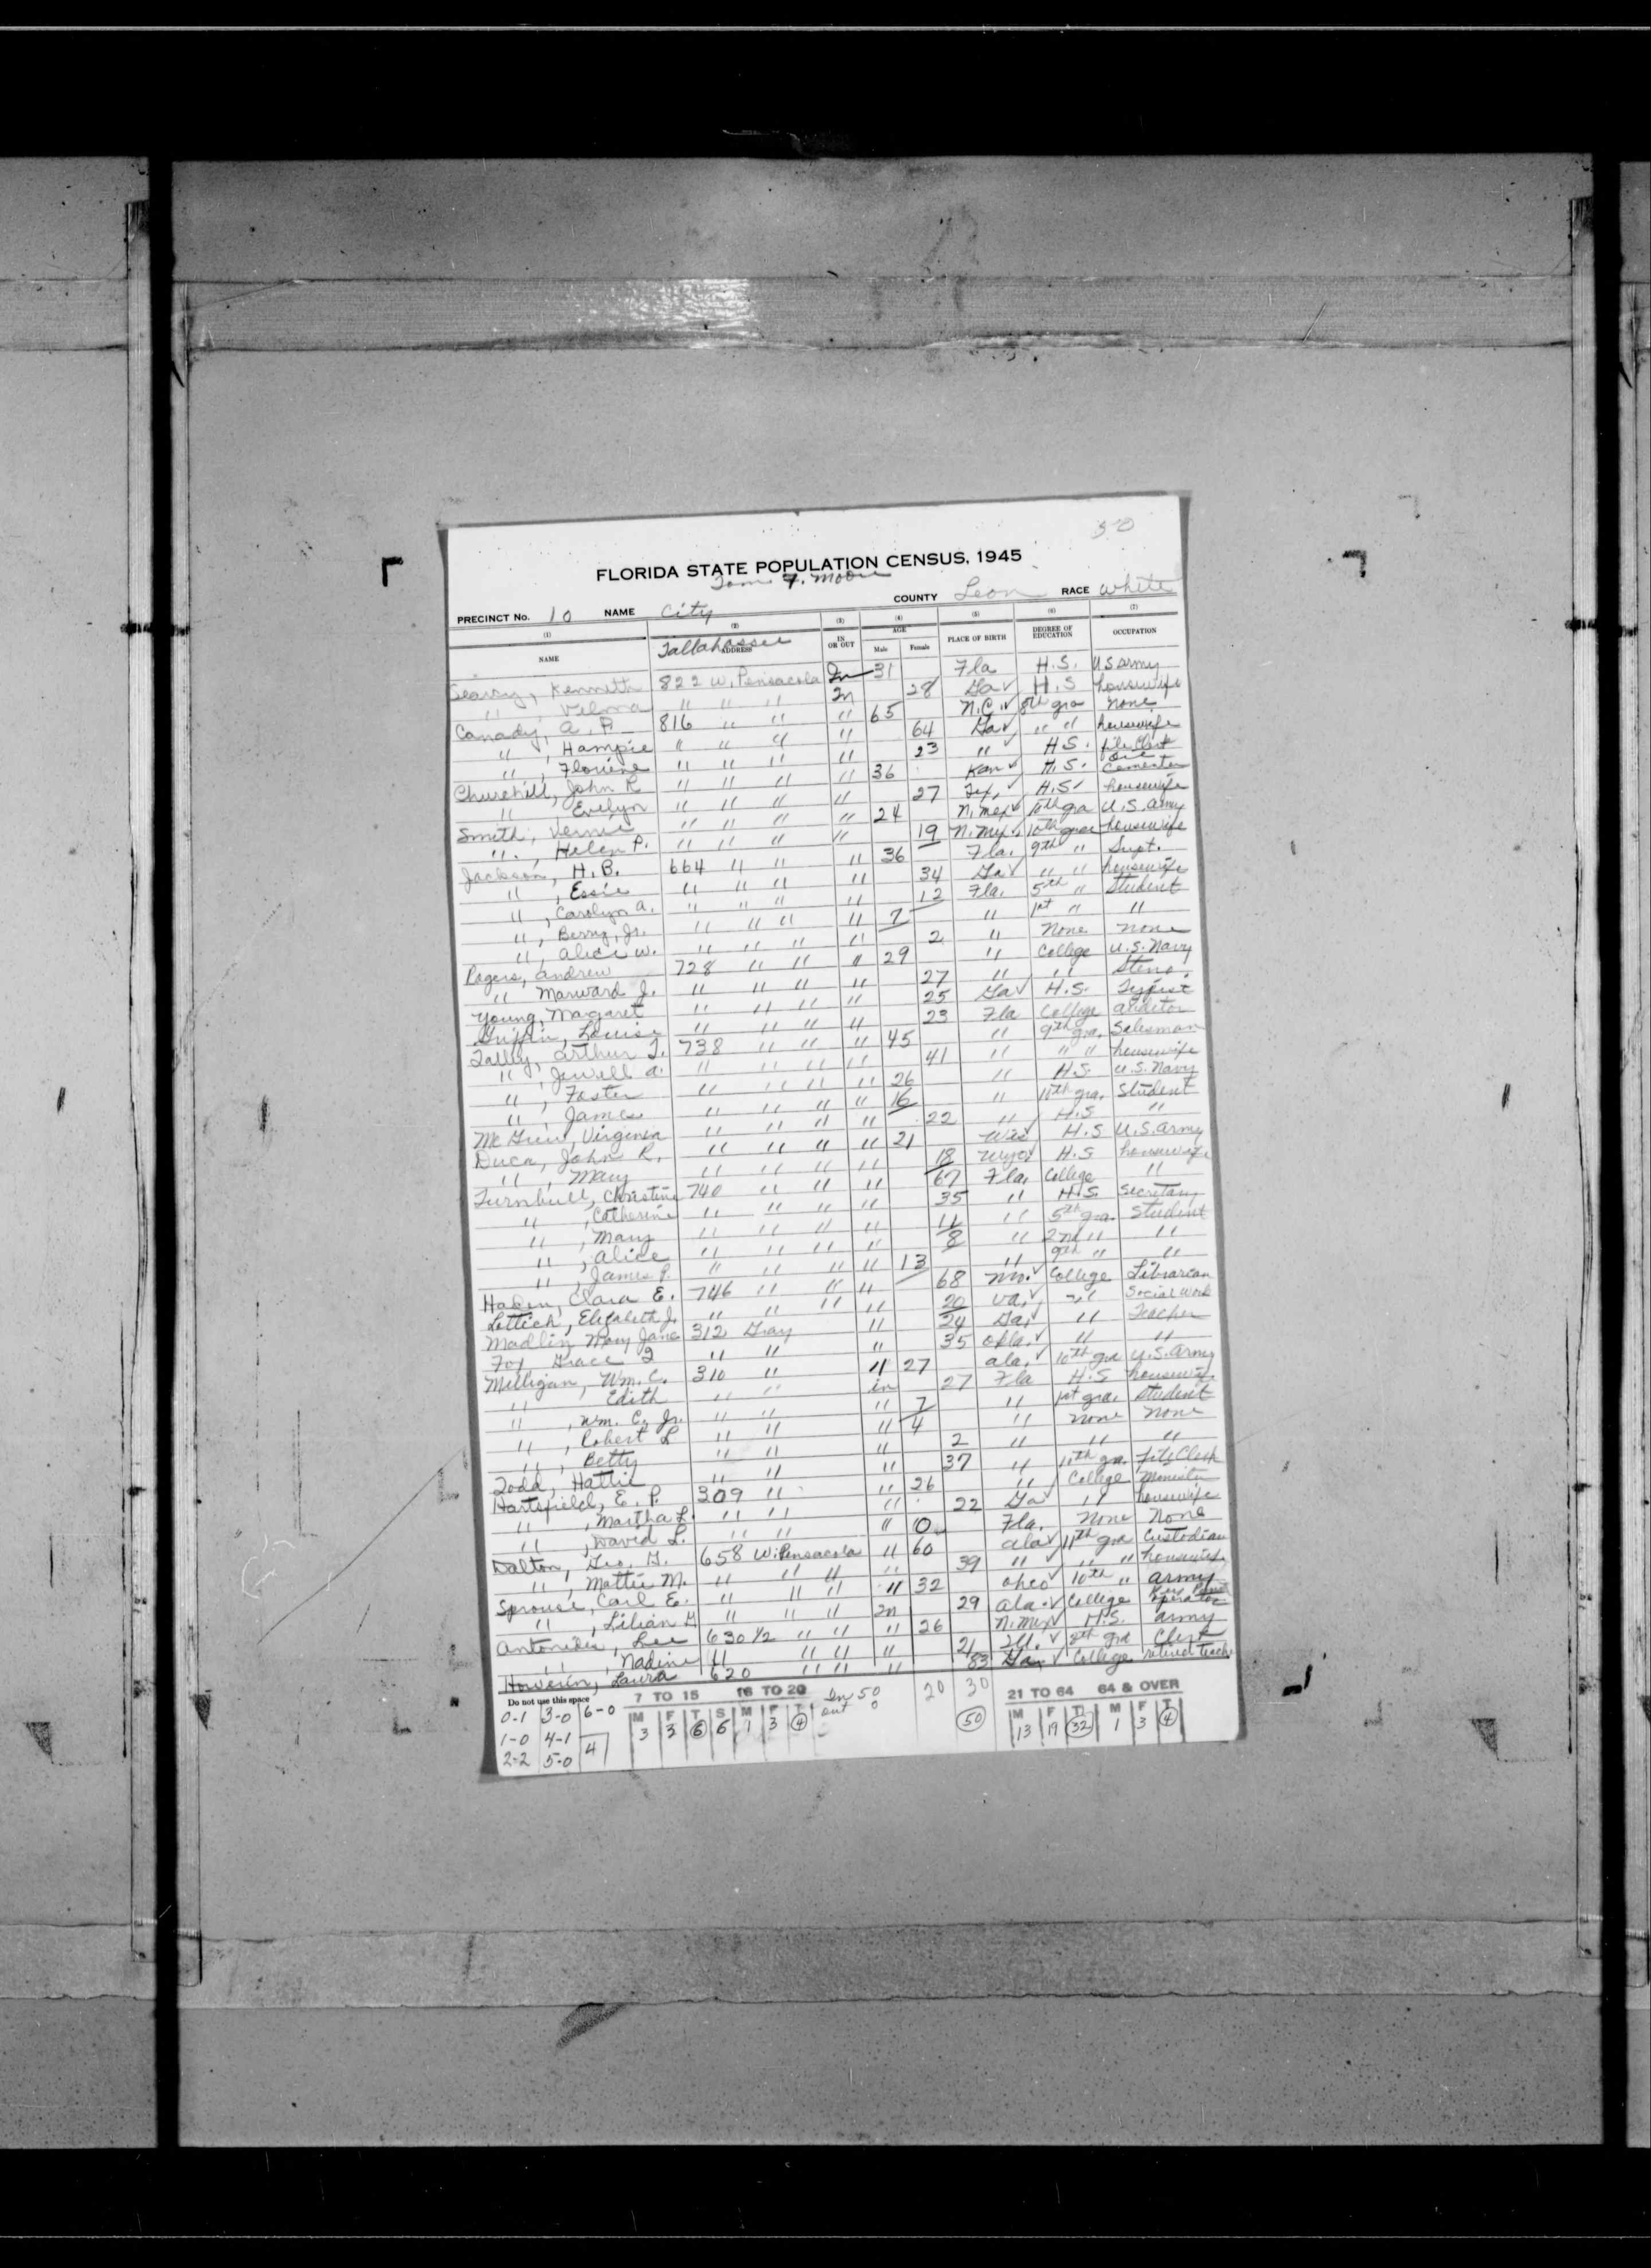 50
FLORIDA STATE POPULATION CENSUS, 1945
Tom F. Moore
PRECINCT No. 10 NAME City COUNTY Leon RACE White
(1) (2) (3) (4) (5) (6) (7)
NAME Tallahassee ADDRESS IN OR OUT AGE Male Female PLACE OF BIRTH DEGREE OF EDUCATION OCCUPATION
Searcy, Kenneth 822 W. Pensacola In 31 Fla H.S. U S army
" , Velma " " " In 28 Ga ✓ H.S housewife
Canady, A. P. 816 " " " 65 N.C. ✓ 8th gra none
" , Hampie " " " " 64 Ga ✓ " " housewife
" , Floriene " " " " 23 " H.S. file clerk
Churchill, John R " " " " 36 Kan ✓ H.S. Cementer
" , Evelyn " " " " 27 Tex, ✓ H.S. housewife
Smith, Vernie " " " " 24 N. mex ✓ 11th gra U.S. army
" , Helen P. " " " " 19 N. Mex. 10th grae housewife
Jackson, H. B. 664 " " " 36 Fla. 9th " Supt.
" , Essie " " " " 34 Ga ✓ " " housewife
" , Carolyn A. " " " " 12 Fla. 5th " Student
" , Berry, Jr. " " " " 7 " 1st " "
" , Alice W. " " " " 2 " None none
Rogers, Andrew 728 " " " 29 " College U.S. Navy
" Marward J. " " " " 27 " " Steno.
Young, Margaret " " " " 25 Ga ✓ H.S. Typist
Griffin, Louise " " " " 23 Fla College auditor
Tally, Arthur T. 738 " " " 45 " 9th gra. Salesman
" , Jewell A. " " " " 41 " " " housewife
" , Foster " " " " 26 " H.S. U.S. Navy
" , James " " " " 16 " 11th gra. Student
Virginia " " " " 22 " H.S "
Duca, John R. " " " " 21 Wis H.S U.S. army
" , Mary " " " " 18 Wyo. H.S housewife
Turnbull, Christine 740 " " " 67 Fla. College "
" , Catherine " " " " 35 " H.S. Secretary
" , Mary " " " " 11 " 5th gra. Student
" , Alice " " " " 8 " 2nd " "
" , James P. " " " " 13 " 9th " "
Clara E. 746 " " " 68 ✓ College Librarian
Lettich, Elizabeth J. " " " " 20 Va. ✓ " Social Work
Mary Jane 312 Gray " 24 Ga. ✓ " Teacher
Fox, Grace " " " 35 Okla. ✓ " "
Milligan, Wm. C. 310 " " 27 ala. ✓ 10th gra U.S. Army
" Edith " " in 27 Fla H.S housewife
" , Wm. C. Jr. " " " 7 " 1st gra. Student
" , Robert L " " " 4 " none none
" , Betty " " " 2 " " "
Todd, Hattie " " " 37 " 11th gra. File Clerk
Hartsfield, E. P. 309 " " 26 " College Minister
" , Martha L. " " " 22 Ga ✓ " housewife
" , David L. " " " 0 Fla. None None
Dalton, Geo. G. 658 W. Pensacola " 60 ala ✓ 11th gra Custodian
" , Mattie M. " " " " 39 " ✓ " " housewife
Sprouse, Carl E. " " " " 32 Ohio ✓ 10th " army
" , Lilian G " " " In 29 ala. ✓ College operator
Lee 630 1/2 " " " 26 N. Mex ✓ H.S. army
" , Nadine " " " " 21 Ill. ✓ 8th gra Clerk
Laura 620 " " " 83 Ga ✓ College retired teacher
Do not use this space 7 TO 15 16 TO 20 In 50 20 30 21 TO 64 64 & OVER
0-1 3-0 6-0 M F T S M F T out 0 50 M F T M F T
1-0 4-1 4 3 3 6 6 1 3 4 13 19 32 1 3 4
2-2 5-0